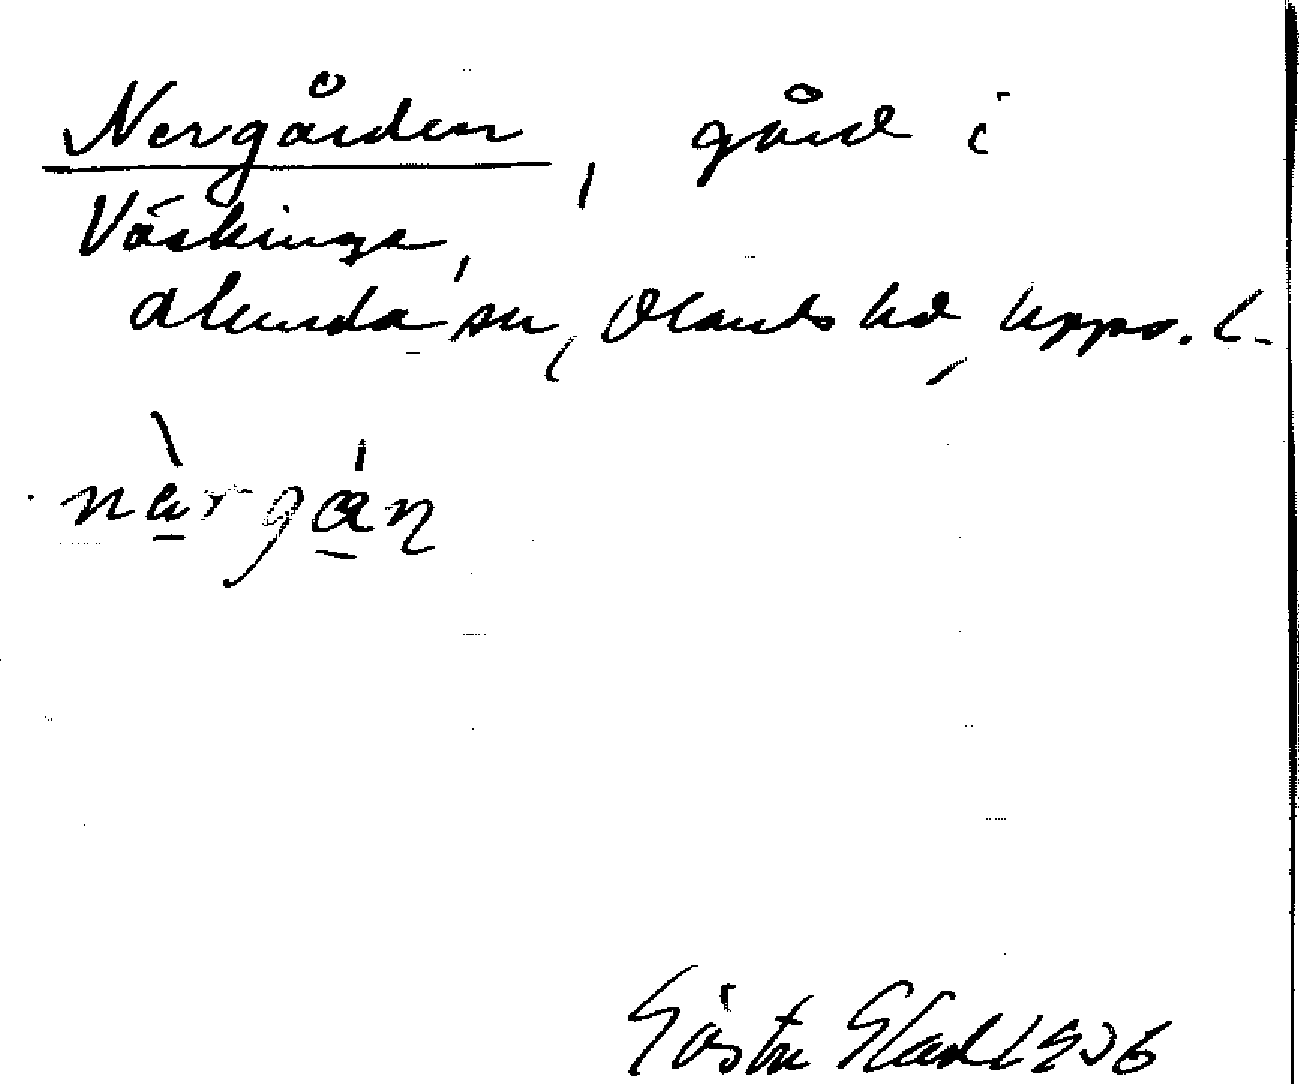 Nergården, gård i
Väskinge,
Alunda sn, Olands hd, Upps. l.
nàrgán
Gösta Elad 1936